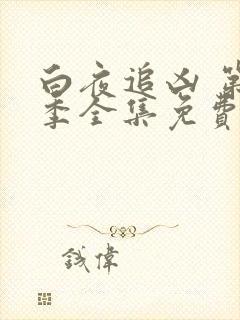 白夜追凶 第
季全集免費
錢偉